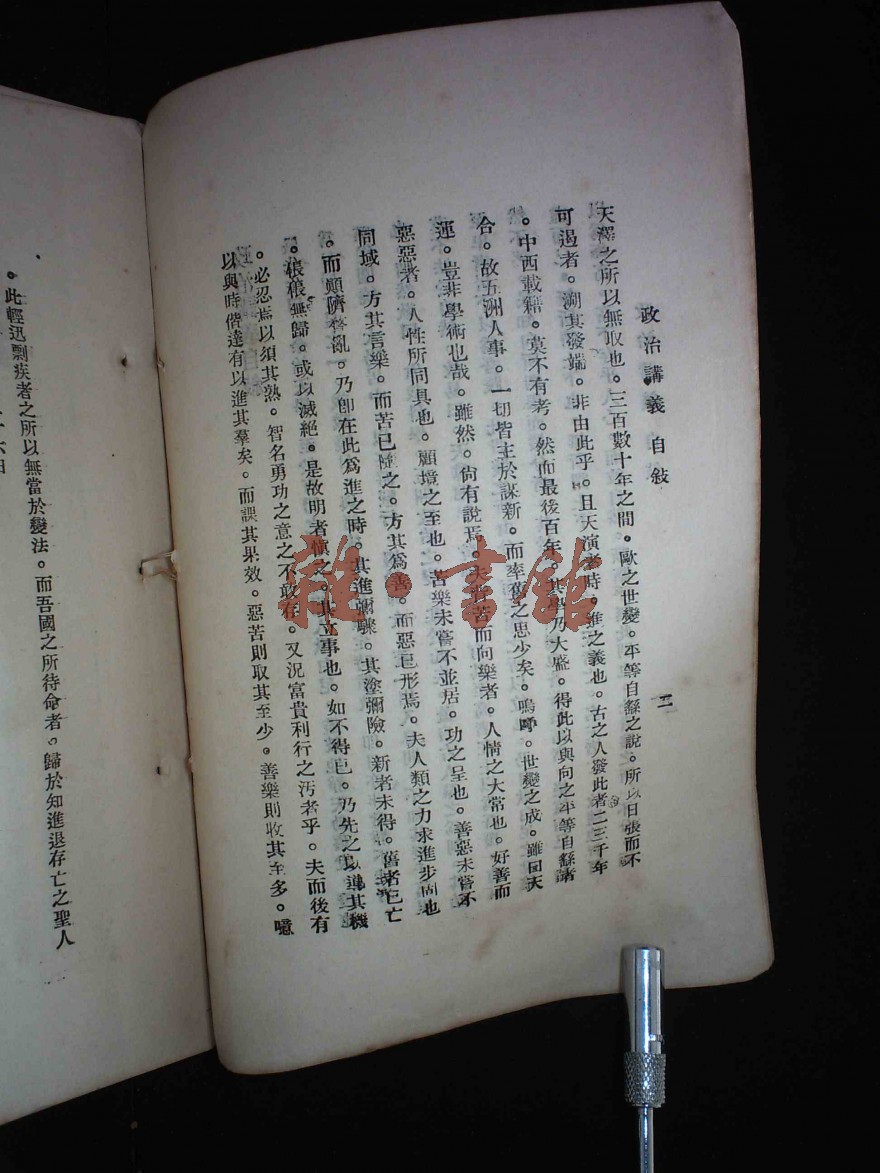 政治講義 自敍
二
天澤之所以無取也。三百數十年之間。歐之世變。平等自繇之說。所以日張而不
可遏者。溯其發端。非由此乎。且天演者時。進之義也。古之人發此者二三千年
。中西載籍。莫不有考。然而最後百年。其學乃大盛。得此以與向之平等自繇諸
合。故五洲人事。一切皆主於謀新。而率舊之思少矣。嗚呼。世變之成。雖曰天
運。豈非學術也哉。雖然。尙有說焉。夫背苦而向樂者。人情之大常也。好善而
惡惡者。人性所同具也。顧境之至也。苦樂未嘗不並居。功之呈也。善惡未嘗不
同域。方其言樂。而苦已隨之。方其爲善。而惡已形焉。夫人類之力求進步固也
。而顚隮瞀亂。乃卽在此爲進之時。其進彌驟。其塗彌險。新者未得。舊者已亡
。倀倀無歸。或以滅絕。是故明者愼之。其立事也。如不得已。乃先之以導其機
。必忍焉以須其熟。智名勇功之意之不敢存。又況富貴利行之汚者乎。夫而後有
以與時偕達有以進其羣矣。而課其果效。惡苦則取其至少。善樂則收其至多。噫
。此輕迅剽疾者之所以無當於變法。而吾國之所待命者。歸於知進退存亡之聖人
雜·書館